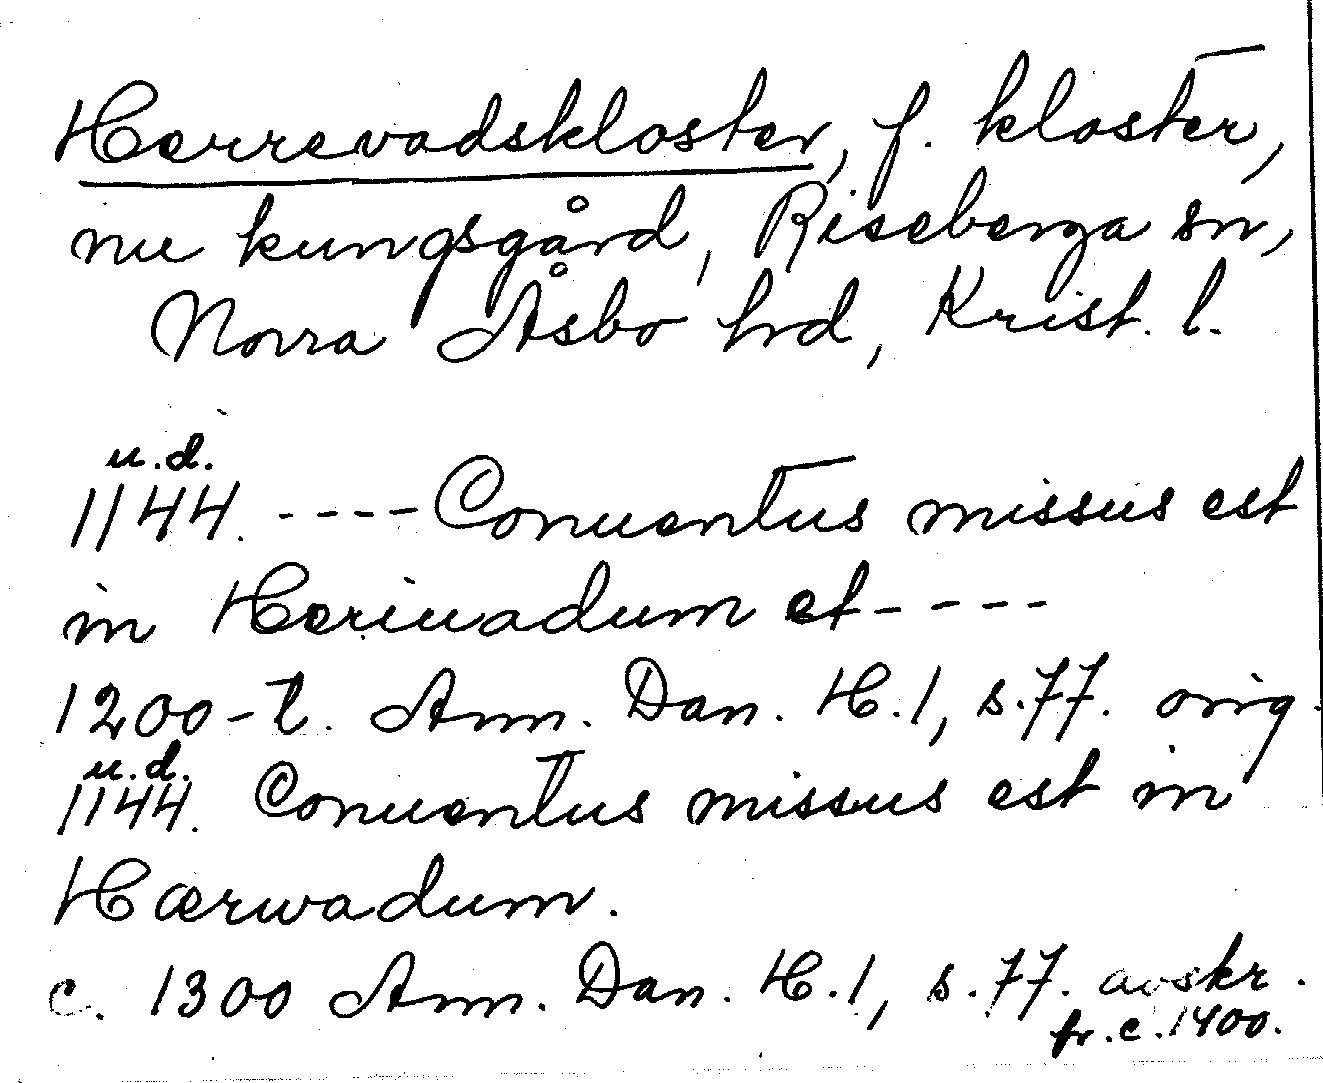 Herrevadskloster, f. kloster,
nu kungsgård, Riseberga sn,
Norra Åsbo hrd, Krist. l.
u.d.
1144. ---- Conuentus missus est
in Heriuadum et ----
1200-t. Ann. Dan. H.1, s.77. orig.
u.d.
1144. Conuentus missus est in
Hærwadum.
c. 1300 Ann. Dan. H.1, s.77. avskr.
fr.c.1400.